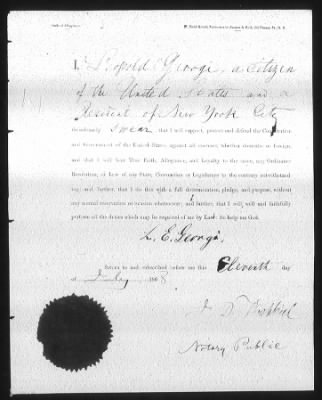 I, Leopold Georgi, a citizen
of the United States and a
Resident of New York City
do solemnly swear that I will support, protect and defend the Constitution
and Government of the United States, against all enemies, whether domestic or foreign,
and that I will bear True Faith, Allegiance, and Loyalty to the same, any Ordinance
Resolution, or Law of any State, Convention or Legislature to the contrary notwithstand-
ing; and further, that I do this with a full determination, pledge, and purpose, without
any mental reservation or evasion whatsoever; and further, that I will well and faithfully
perform all the duties which may be required of me by Law. So help me God.
L. E. Georgi.
Sworn to and subscribed before me this Eleventh day
of July 186
Notary Public